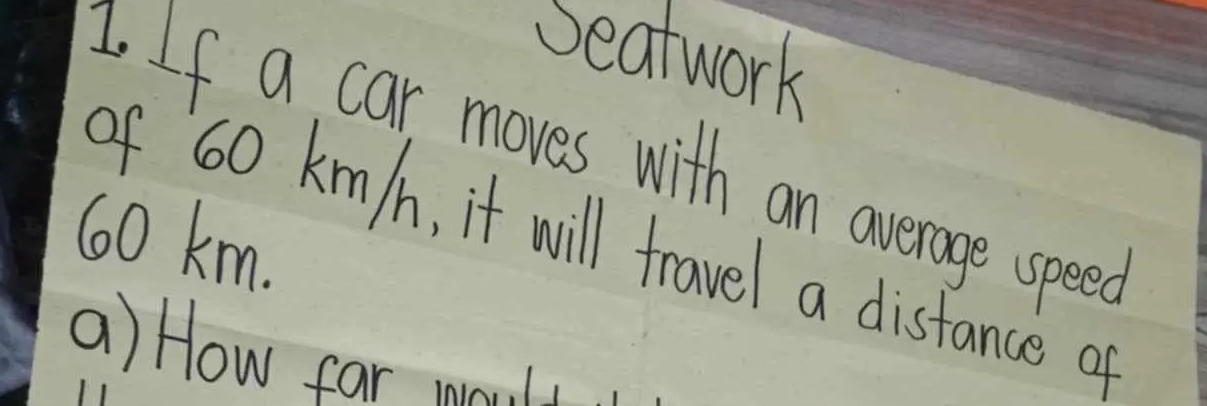 Seatwork
1. If a car moves with an average speed
of 60 km/h, it will travel a distance of
60 km.
a) How far would